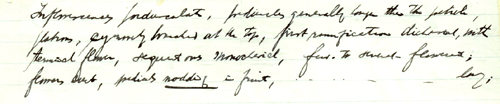 Inflorescences pedunculate, peduncles generally longer than the petiole,
, cymosely branched at the top, first ramification dichasial, with
terminal flower, sequations monochasial, few- to several-flowered;
flowers erect, pedicels nodding in fruit, . . . . . . long;